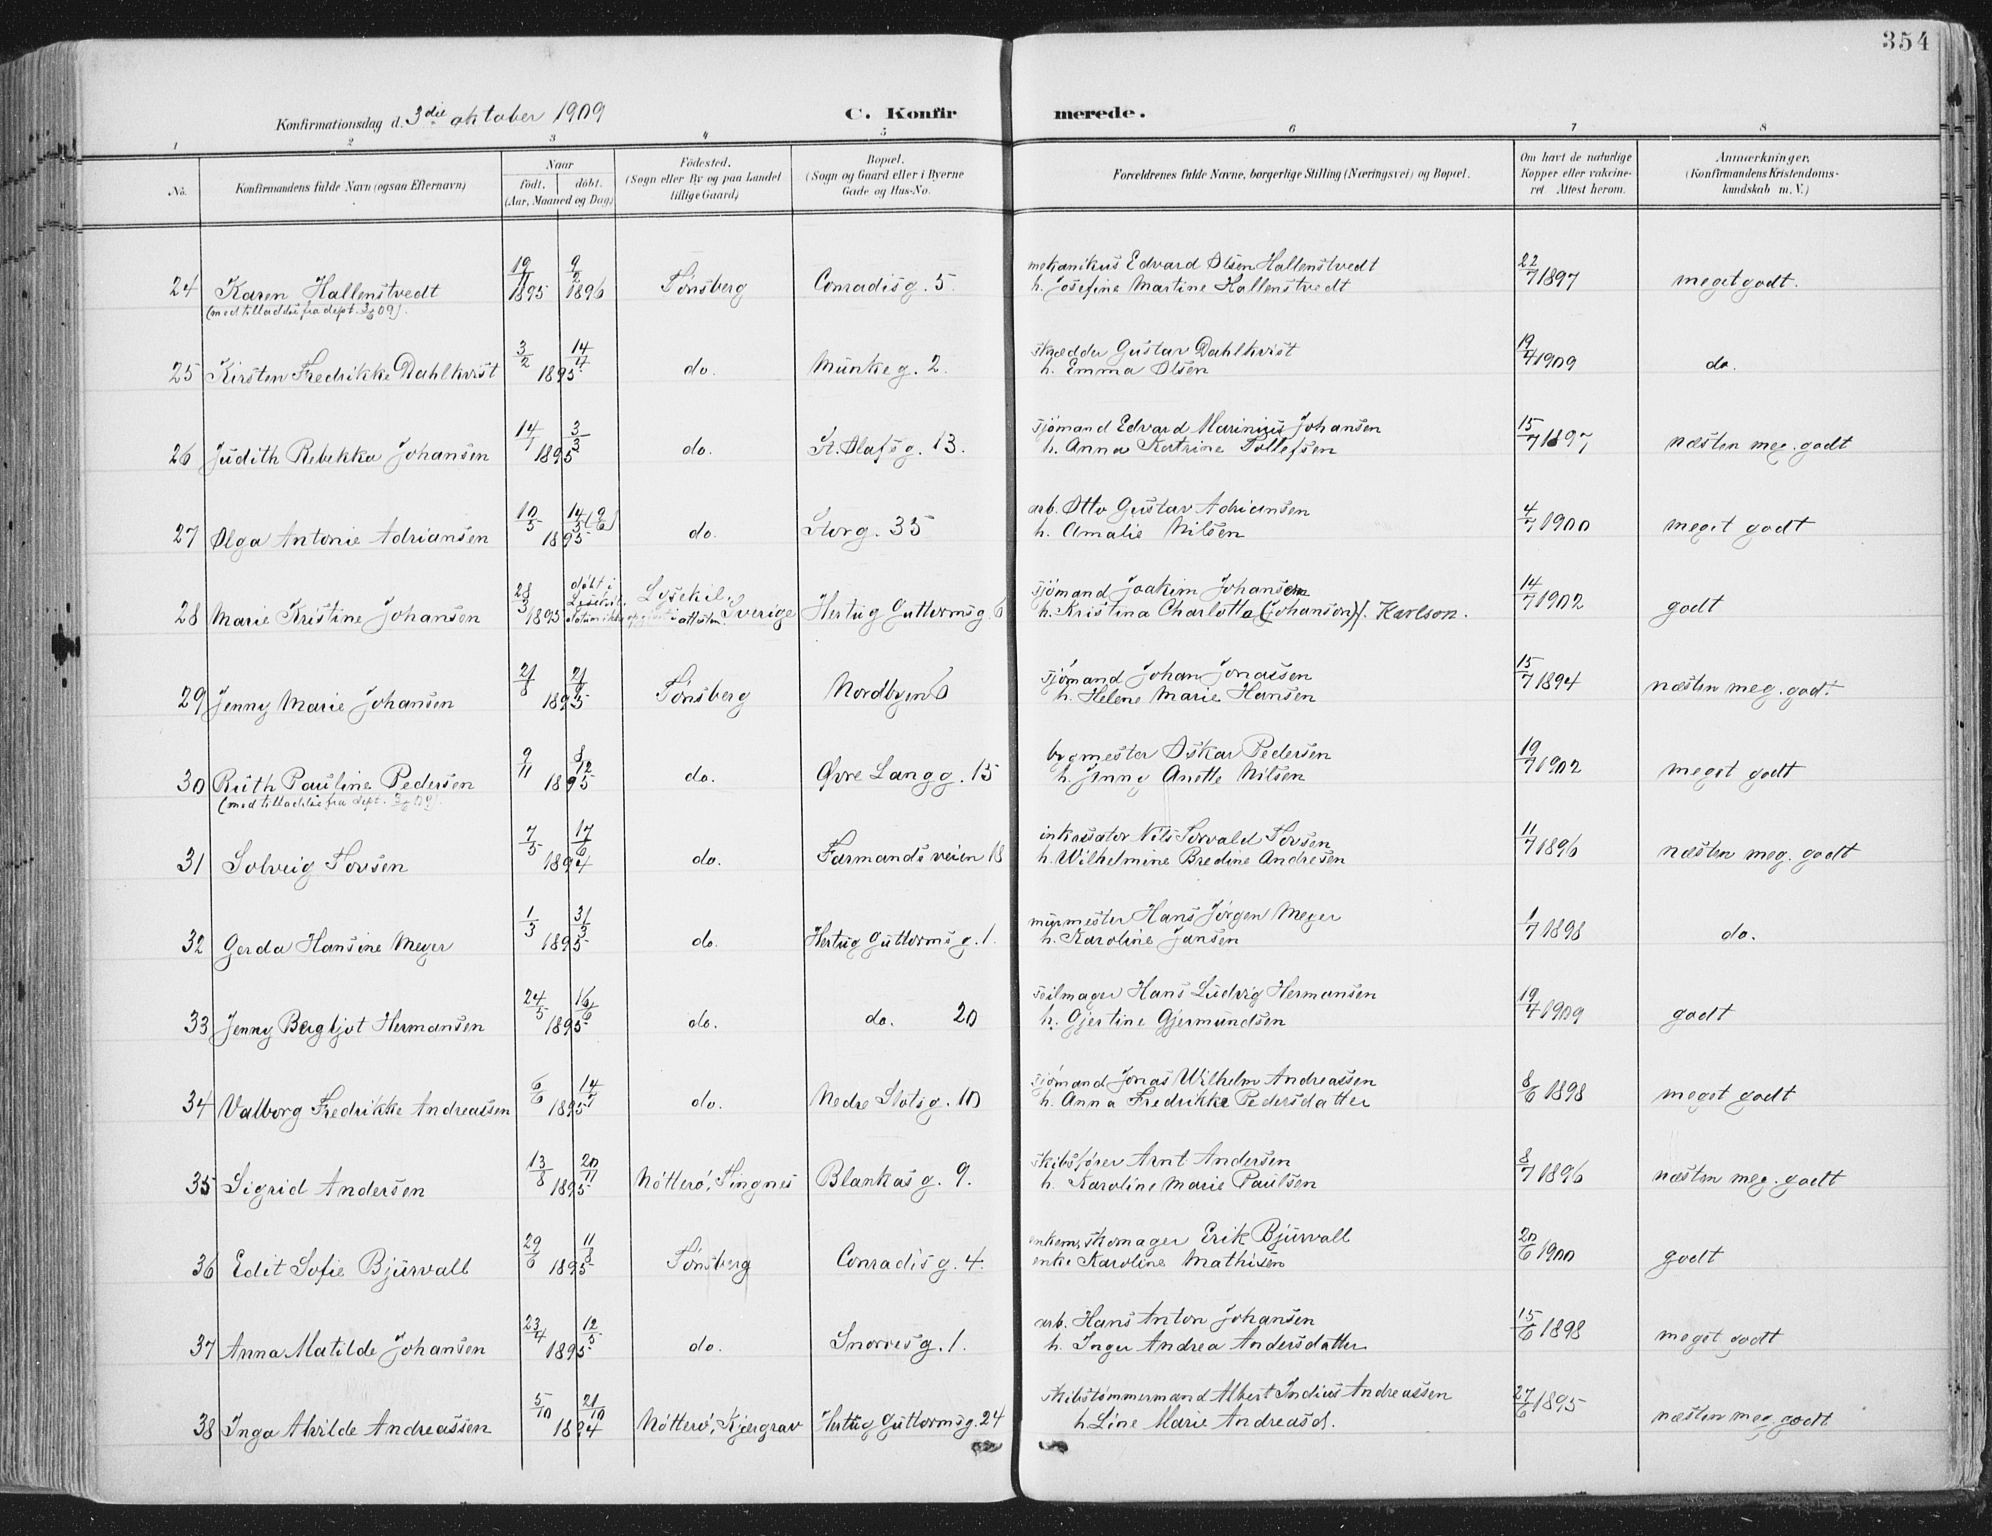 354
Konfirmationsdag d. 3die oktober 1909 C. Konfirmerede.
1 2 3 4 5 6 7 8
No. Konfirmandens fulde Navn (ogsaa Efternavn) Naar født. døbt. (Aar, Maaned og Dag) Fødested. (Sogn eller By og paa Landet tillige Gaard) Bopæl. (Sogn og Gaard eller i Byerne Gade og Hus-No. Forældrenes fulde Navne, borgerlige Stilling (Næringsvei) og Bopæl. Om havt de naturlige Kopper eller vakcineret. Attest herom. Anmærkninger. (Konfirmandens Kristendomskundskab m. V.)
24 Karen Hallenstvedt 19/11 1895 9/2 1896 Tønsberg Conradisg. 5. mekanikus Edvard Olsen Hallenstvedt 22/7 1897 meget godt.
(med tilladelse fra dept. 09). h. Josefine Martine Hallenstvedt
25 Kirsten Fredrikke Dahlkvist 3/2 14/4 1895 do. Munkeg. 2. skrædder Gustav Dahlkvist 19/4 1909 do.
h. Emma Olsen
26 Judith Rebekka Johansen 14/1 3/3 1895 do. St. Olafsg. 13. sjømand Edvard Marinius Johansen 15/7 1897 næsten meg. godt
h. Anna Katrine Tollefsen
27 Olga Antonie Adriansen 10/5 14/5 (9/6) 1895 do. Storg. 35 arb. Otto Gustav Adriansen 4/7 1900 meget godt
h. Amalie Nilsen
28 Marie Kristine Johansen 28/3 1895 døbt i Lysekil. Lysekil. Sverige Hertug Guttormsg. 6 sjømand Joakim Johansen 14/7 1902 godt
h. Kristina Charlotta (Johanson) f. Karlson.
29 Jenny Marie Johansen 21/8 21/9 1895 Tønsberg Nordbyen 6 sjømand Johan Jonassen 15/7 1894 næsten meg. godt
h. Helene Marie Hansen
30 Ruth Pauline Pedersen 9/11 8/12 1895 do. Øvre Langg. 15 bygmester Oskar Pedersen 19/7 1902 meget godt
(med tilladelse fra dept. 09). h. Jenny Anette Nilsen
31 Solveig Tovsen 7/5 17/6 1894 do. Farmandsveien 18 inkassator Nils Torvald Tovsen 11/7 1896 næsten meg. godt
h. Wilhelmine Bredine Andresen
32 Gerda Hansine Meyer 1/3 31/3 1895 do. Hertug Guttormsg. 1. murmester Hans Jørgen Meyer 1/7 1898 do.
h. Karoline Jansen
33 Jenny Bergljot Hermansen 24/5 16/6 1895 do. do. 20 seilmager Hans Ludvig Hermansen 19/4 1909 godt
h. Gjertine Gjermundsen
34 Valborg Fredrikke Andreassen 6/6 14/7 1895 do. Nedre Slotsg. 10 sjømand Jonas Wilhelm Andreassen 8/6 1898 meget godt
h. Anna Fredrikke Pedersdatter
35 Sigrid Andersen 13/8 20/11 1895 Nøtterø, Tingnes Blankasg. 9. skibsfører Arnt Andersen 8/7 1896 næsten meg. godt
h. Karoline Marie Paulsen
36 Edit Sofie Bjurvall 29/6 11/8 1895 Tønsberg Conradisg. 4. enkem. skomager Erik Bjurvall 20/6 1900 godt
enke Karoline Mathisen
37 Anna Matilde Johansen 23/4 12/5 1895 do. Snorresg. 1. arb. Hans Anton Johansen 15/6 1898 meget godt
h. Inger Andrea Andersdatter
38 Inga Alvilde Andreassen 5/10 21/10 1894 Nøtterø, Kjærgrav Hertug Guttormsg. 24 skibstømmermand Albert Indius Andreassen 27/6 1895 næsten meg. godt
h Line Marie Andreasd.